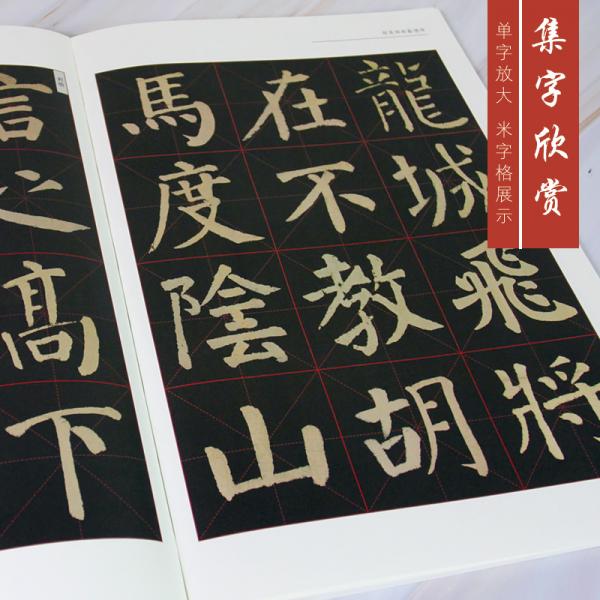 集字欣赏
单字放大 米字格展示
龍城飛將
在不教胡
馬度陰山
之高下